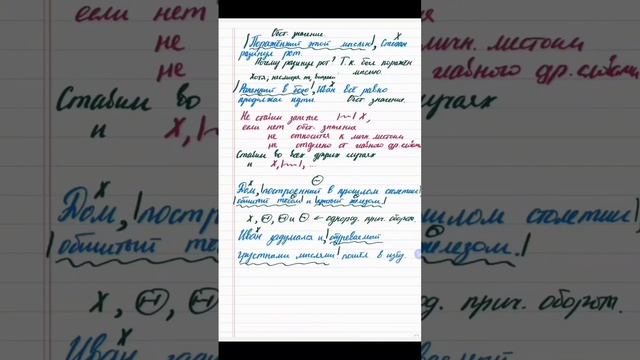 Обст. значение.
|Поражённый этой мыслью|, Степан
разинул рот.
Почему разинул рот? Т.к. был поражён
мыслью.
Хотя, несмотря на,
|Раненный в бою|, Иван всё равно
продолжал идти. Обст. значение.
Не ставим запяте |~| X,
если нет обст. значения
не относится к личн. местоим.
не отделено от главного др. словами
Ставим во всех других случаях
и X, |~|, ...
Дом, |построенный в прошлом столетии|
|обшитый тёсом| и |крытый железом.|
X, ⊖, ⊖ и ⊖ ← однород. прич. обороты.
Иван задумался и, |обуреваемый
грустными мыслями| пошёл в избу.
если нет
не
не
Ставим во
и X, |~|
личн. местоим
главного др. словами
случаях
Дом, |построенный
|обшитый тё
X, ⊖, ⊖
Иван
шлом столетии|
железом.|
д. прич. обороты.